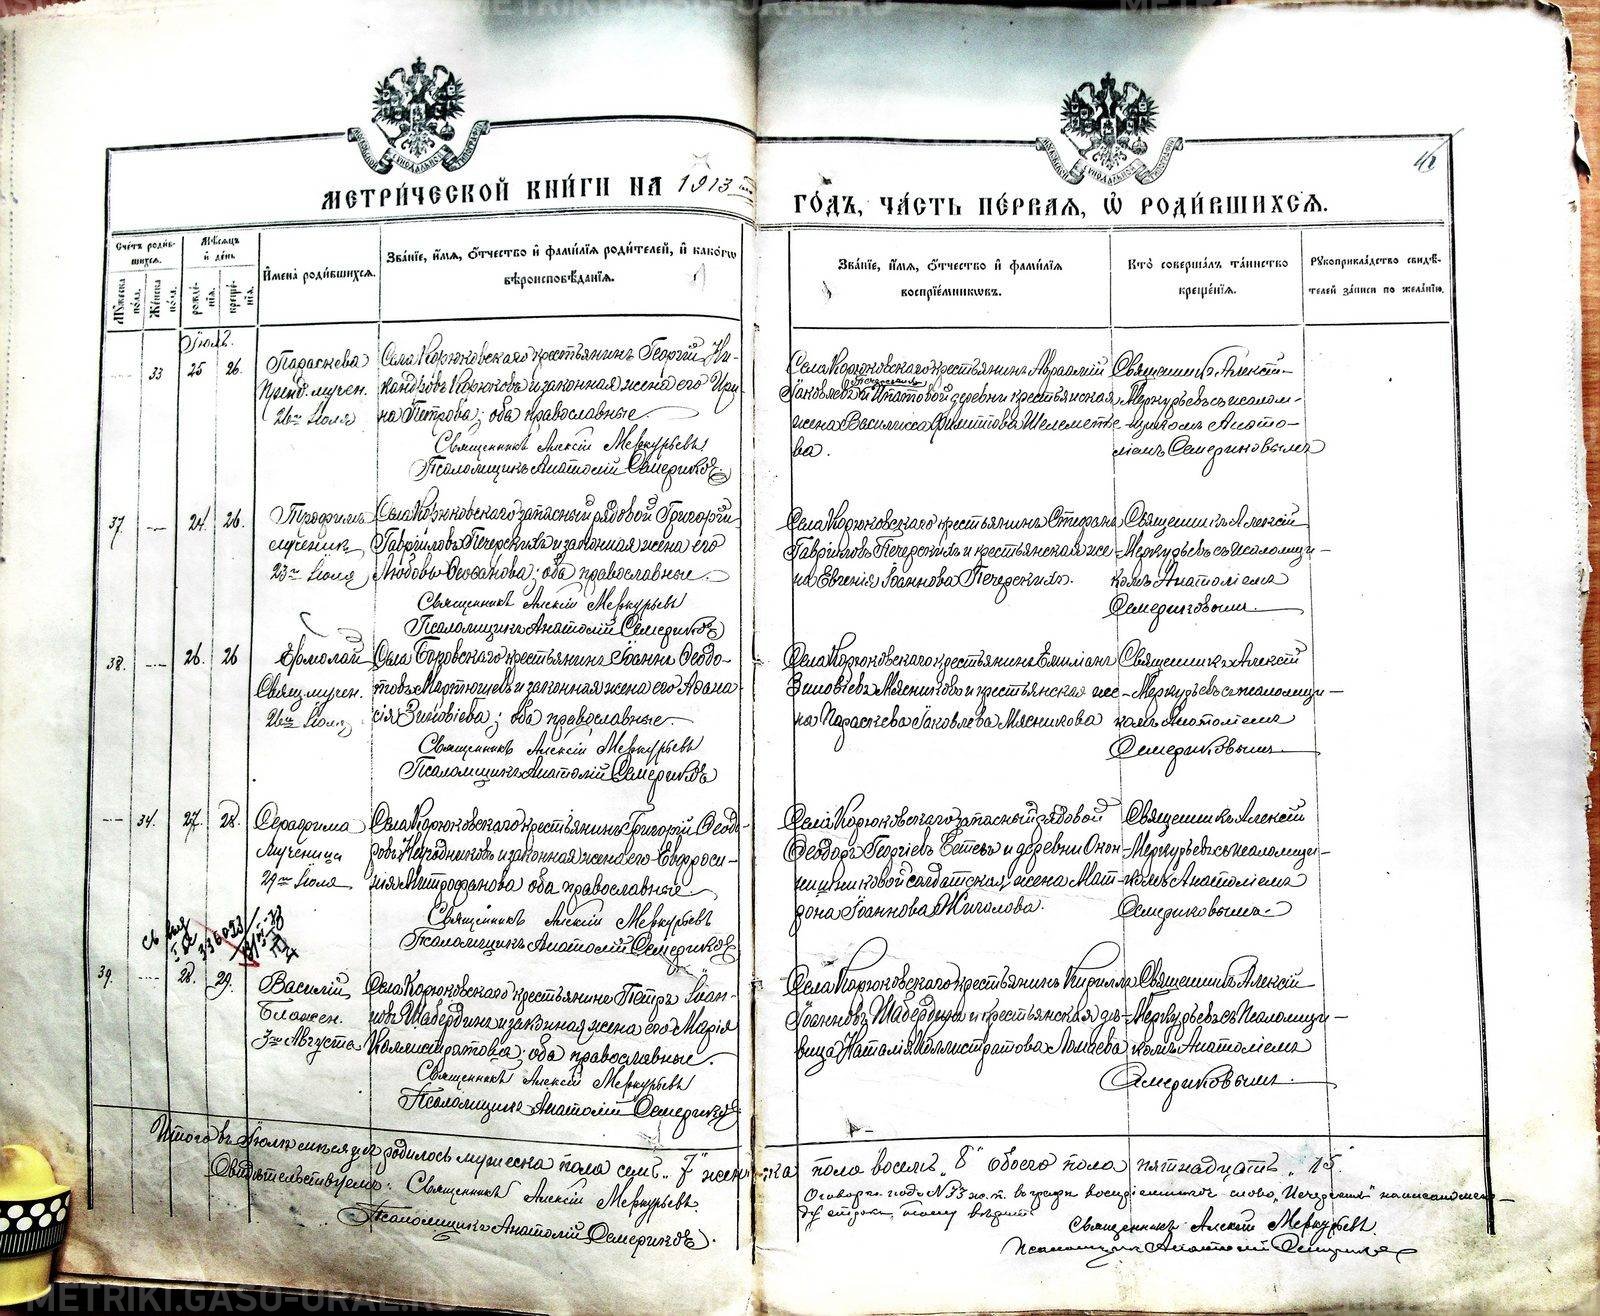 METRIKI.GASO-URAL.RU
МЕТРИ́ЧЕСКОЙ КНИ́ГИ НА 1913
ГО́ДЪ, ЧА́СТЬ ПЕ́РВАЯ, Ѡ҆ РОДИ́ВШИХСЯ.
Сче́тъ роди́вшихся.
Му́жеска по́ла.
Же́нска по́ла.
Мѣ́сяцъ и҆ де́нь
рожде́нїя.
креще́нїя.
И҆мена̀ роди́вшихся.
Зва́нїе, и҆́мя, ѻ҆́тчество и҆ фами́лїя роди́телей, и҆ како́гѡ
вѣроисповѣ́данїя.
Зва́нїе, и҆́мя, ѻ҆́тчество и҆ фами́лїя
воспрїе́мниковъ.
Кто̀ соверша́лъ та́инство
креще́нїя.
Рꙋкоприкла́дство свидѣ́-
телей за́писи по жела́нїю.
Іюль.
33 25 26.
Параскева
Преп. мучен.
26го Іюля
Села Корюковскаго крестьянинъ Георгій Ни-
кандровъ Корюковъ и законная жена его Ири-
на Петрова; оба православные.
Священникъ Алексій Меркурьевъ
Псаломщикъ Анатолій Семериковъ
Села Корюковскаго крестьянинъ
Іаковлевъ и Ипатовой деревни крестьянская
жена Василисса Филиппова Шелеметье-
ва.
Священникъ Алексій
Меркурьевъ съ псалом-
щикомъ Анато-
ліемъ Семериковымъ
37. 24. 26.
Трофимъ
мученик
23го Іюля
Села Корюковскаго запасный рядовой Григорій
Гавріиловъ Печерскихъ и законная жена его
Любовь Ѳеофанова; оба православные.
Священникъ Алексій Меркурьевъ
Псаломщикъ Анатолій Семериковъ
Села Корюковскаго крестьянинъ Стефанъ
Гавріиловъ Печерскихъ и крестьянская же-
на Евгенія Іоаннова Печерскихъ.
Священникъ Алексій
Меркурьевъ съ псаломщи-
комъ Анатоліемъ
Семериковымъ.
38. 26. 26
Ермолай
Свящ. мучен.
26го Іюля
Села Боровскаго крестьянинъ Іоаннъ Ѳеодо-
товъ Мартюшевъ и законная жена его Аѳана-
сія Зиновіева; оба православные.
Священникъ Алексій Меркурьевъ
Псаломщикъ Анатолій Семериковъ
Села Корюковскаго крестьянинъ Емиліанъ
Зиновіевъ Мясниковъ и крестьянская же-
на Параскева Іаковлева Мясникова
Священникъ Алексій
Меркурьевъ съ псаломщи-
комъ Анатоліемъ
Семериковымъ.
34. 27. 28.
Серафима
мученица
29го Іюля
Села Корюковскаго крестьянинъ Григорій Ѳеодо-
ровъ и законная жена его Евфроси-
нія Митрофанова оба православные.
Священникъ Алексій Меркурьевъ
Псаломщикъ Анатолій Семериковъ
Села Корюковскаго запасный рядовой
Ѳеодоръ Георгіевъ и деревни Окон-
нишниковой солдатская жена Мат-
рона Іоаннова Жиголова.
Священникъ Алексій
Меркурьевъ съ псаломщи-
комъ Анатоліемъ
Семериковымъ.
39. 28. 29.
Василій
Блажен.
3го Августа
Села Корюковскаго крестьянинъ Петръ Іоан-
новъ Шабердинъ и законная жена его Марія
Каллистратовна; оба православные.
Священникъ Алексій Меркурьевъ
Псаломщикъ Анатолій Семериковъ
Села Корюковскаго крестьянинъ Кириллъ
Іоанновъ Шабердинъ и крестьянская дѣ-
вица Наталія Каллистратова Ломаева
Священникъ Алексій
Меркурьевъ съ Псаломщи-
комъ Анатоліемъ
Семериковымъ.
Итого въ Іюлѣ мѣсяцѣ родилось мужеска пола семь „7" женска пола восемь „8" обоего пола пятнадцать „15".
Свидѣтельствуемъ: Священникъ Алексій Меркурьевъ.
Псаломщикъ Анатолій Семериковъ.
слово „Печерскихъ"
вѣрить
Священникъ Алексій Меркурьевъ.
Псаломщикъ Анатолій Семериковъ
METRIKI.GASO-URAL.RU